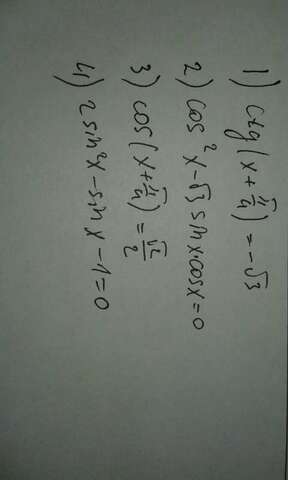 1) ctg(x + π/4) = -√3
2) cos²x - √3 sinx·cosx = 0
3) cos(x + π/4) = √2/2
4) 2sin²x - sinx - 1 = 0